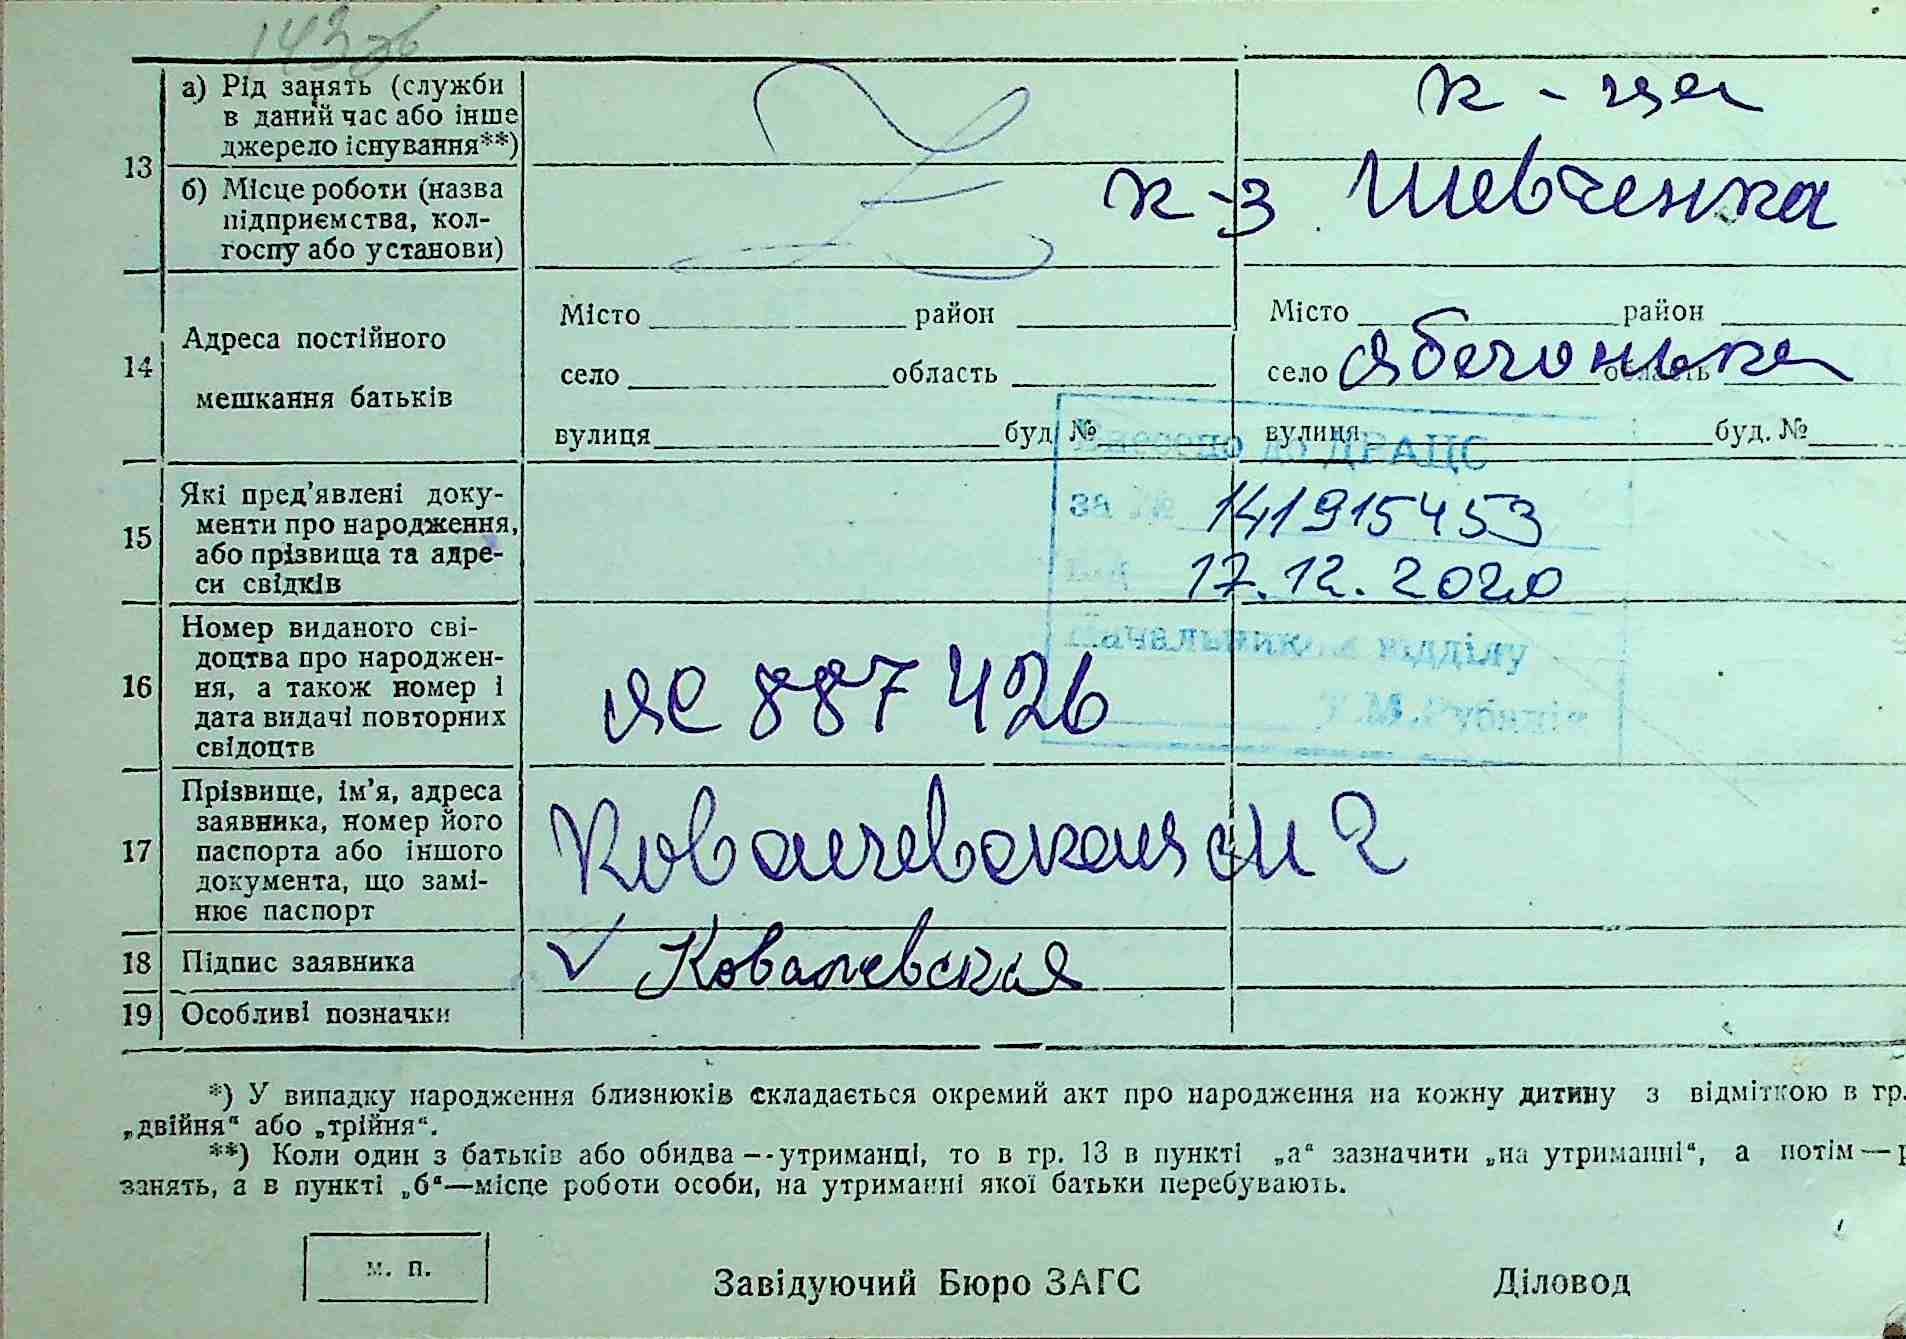 143зв
а) Рід занять (служби в даний час або інше джерело існування**)
к-ця
13
б) Місце роботи (назва підприємства, колгоспу або установи)
к-з Шевченка
14
Адреса постійного мешкання батьків
Місто район
село область
вулиця буд. №
Місто район
село Яблонька область
вулиця буд. №
Внесено до ДРАЦС
за № 141915453
від 17.12.2020
Начальник відділу
15
Які пред'явлені документи про народження, або прізвища та адреси свідків
16
Номер виданого свідоцтва про народження, а також номер і дата видачі повторних свідоцтв
ЯС 887426
17
Прізвище, ім'я, адреса заявника, номер його паспорта або іншого документа, що замінює паспорт
Ковалевская
18 Підпис заявника
Ковалевская
19 Особливі позначки
*) У випадку народження близнюків складається окремий акт про народження на кожну дитину з відміткою в гр.
„двійня“ або „трійня“.
**) Коли один з батьків або обидва—утриманці, то в гр. 13 в пункті „а“ зазначити „на утриманні“, а потім—
занять, а в пункті „б“—місце роботи особи, на утриманні якої батьки перебувають.
м. п.
Завідуючий Бюро ЗАГС
Діловод